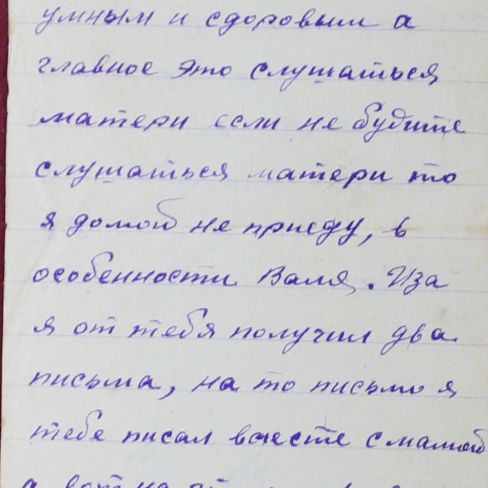 умным и здоровым а
главное это слушаться
матери если не будите
слушаться матери то
я домой не приеду, в
особенности Валя. Иза
я от тебя получил два
письма, на то письмо я
тебе писал вместе с мамой
а вот на